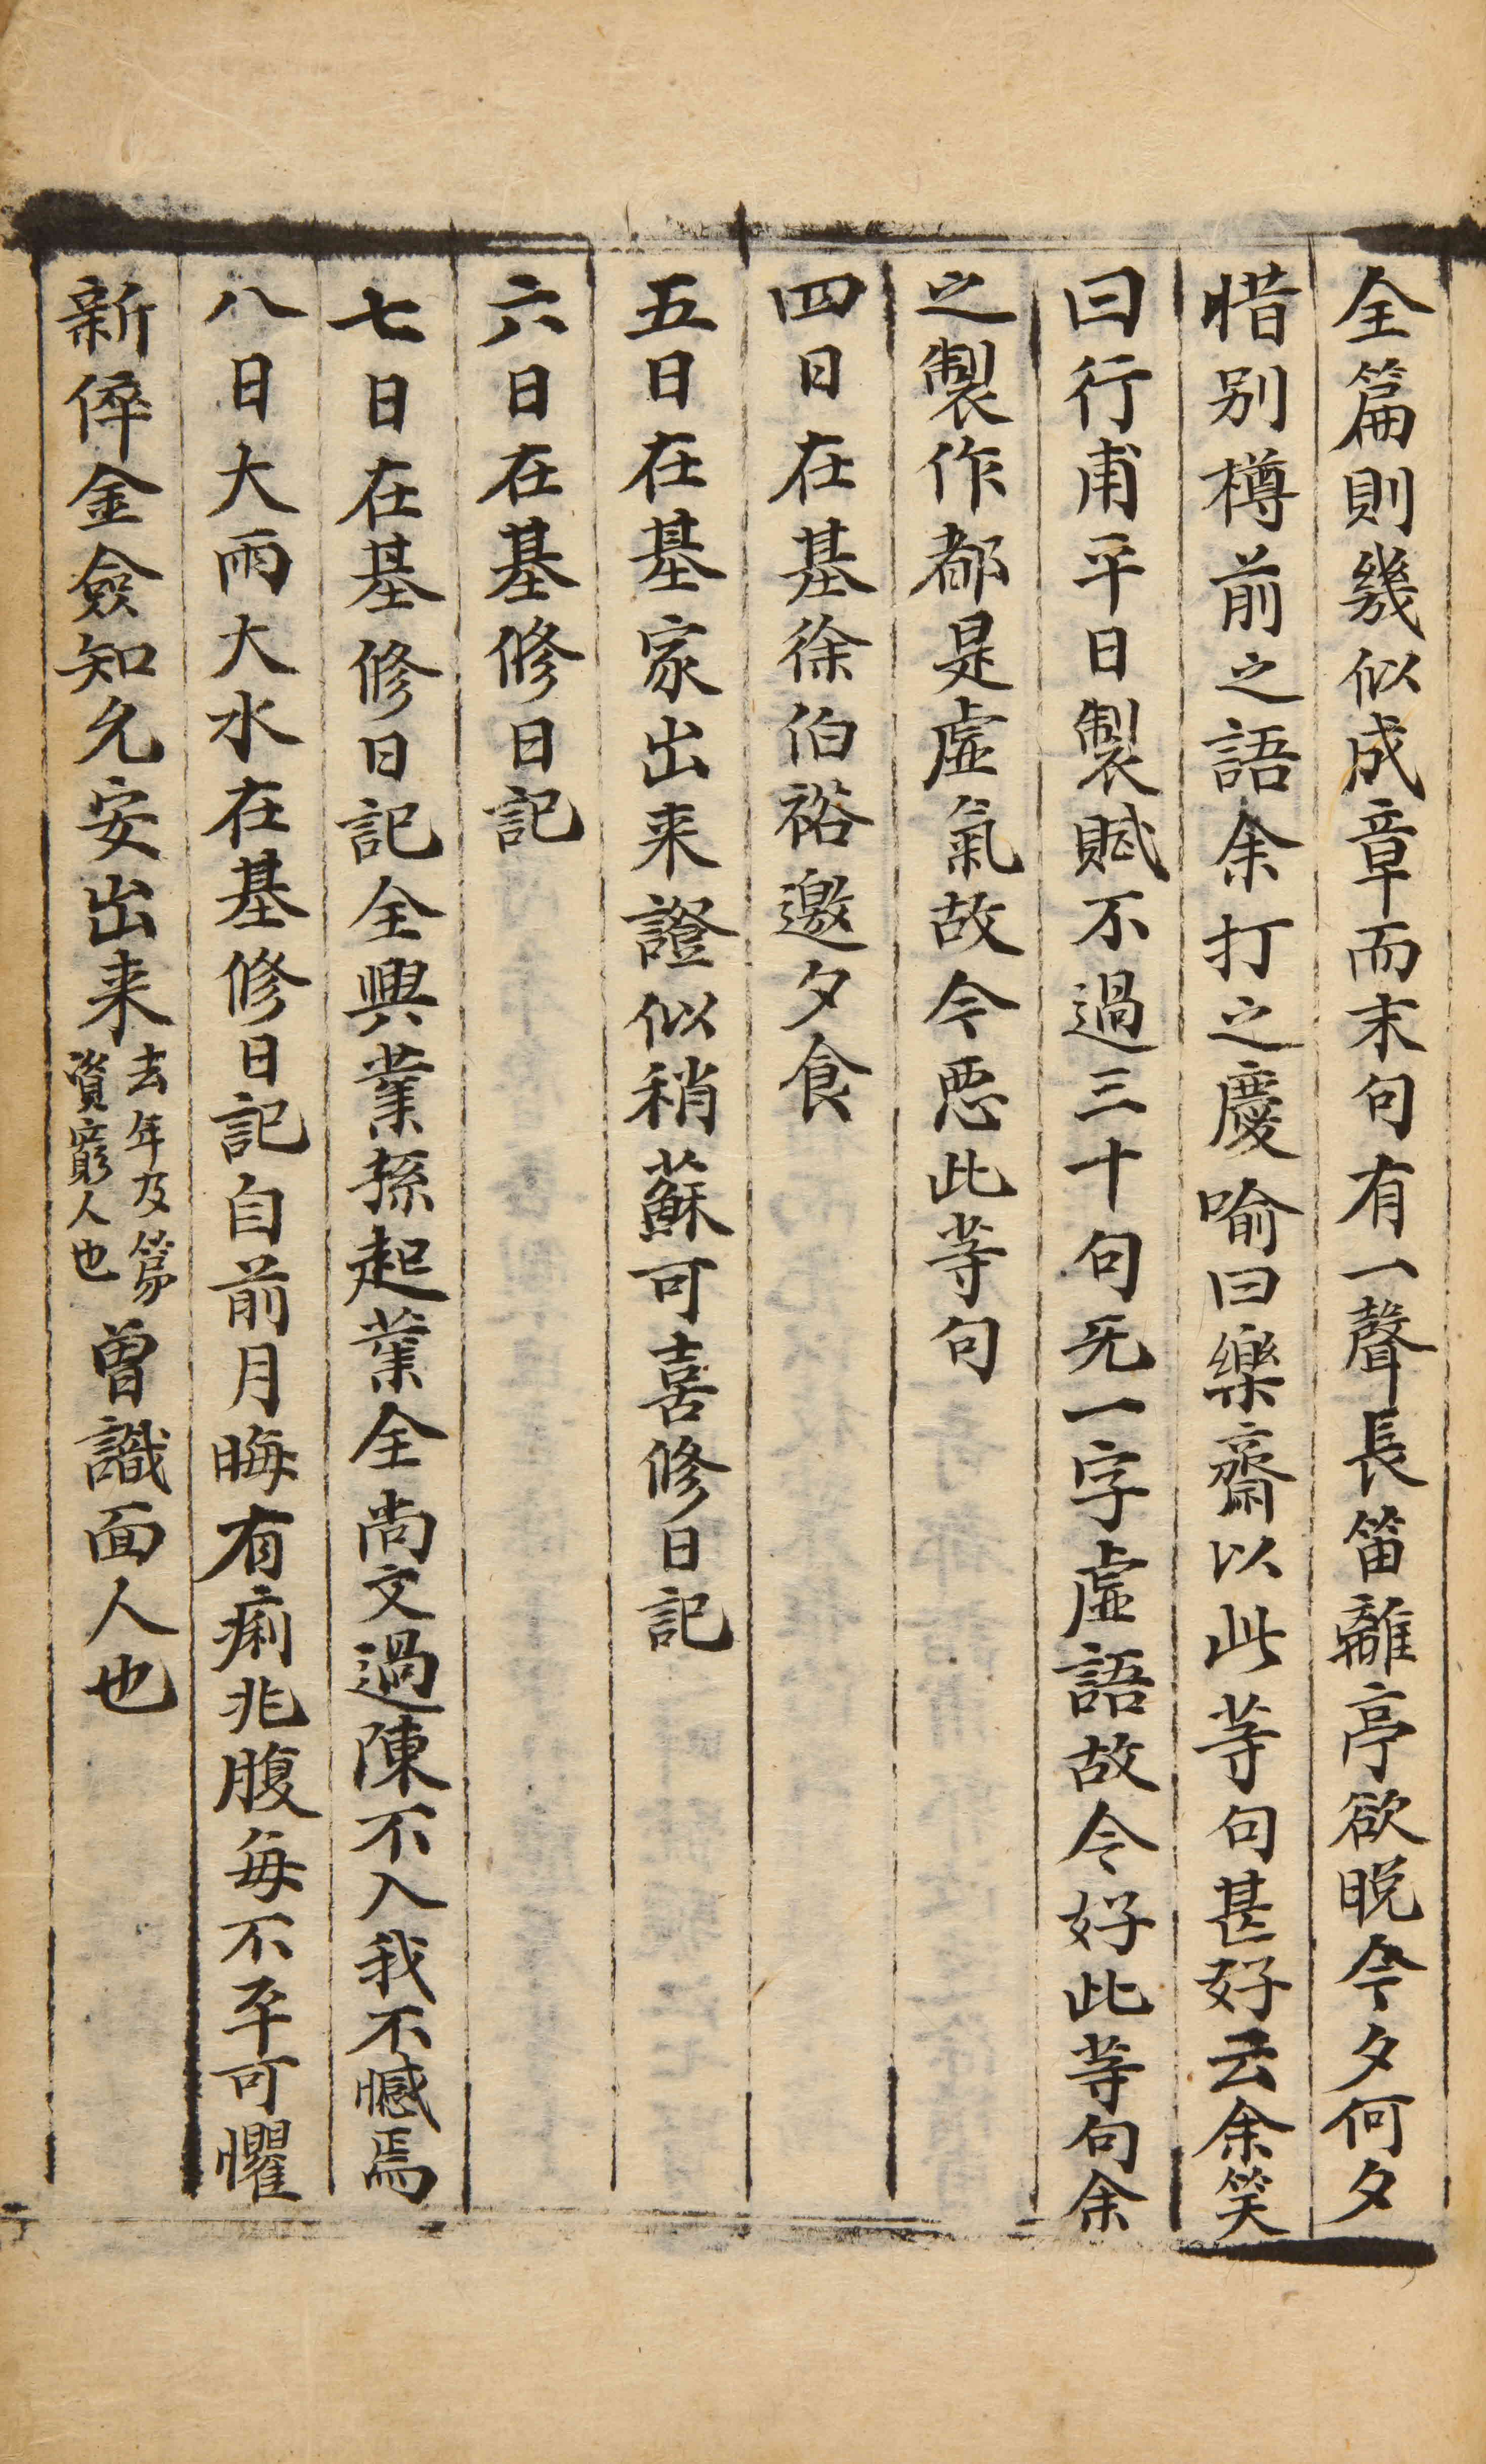 全篇則幾似成章而末句有一聲長笛離亭欲晩今夕何夕
惜别樽前之語余打之慶喻曰樂齋以此等句甚好云余笑
曰行甫平日製賦不過三十句无一字虛語故今好此等句余
之製作都是虛氣故今惡此等句
四日在基徐伯裕邀夕食
五日在基家出来證似稍蘇可喜修日記
六日在基修日記
七日在基修日記全興業孫起業全尚文過陳不入我不憾焉
八日大雨大水在基修日記自前月晦有痢兆腹每不平可懼
新倅金僉知允安出来
去年及第
資窮人也
曽識面人也